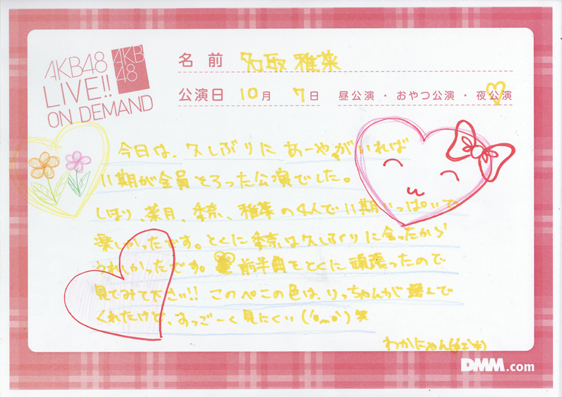 AKB48
LIVE!!
ON DEMAND
AKB
48
名前 名取 稚菜
公演日 10月 7日 昼公演・おやつ公演・夜公演
今日は、久しぶりに あーやがいれば
11期が全員そろった公演でした。
しほり、菜月、杏奈、稚菜の4人で11期いっぱいで
楽しかったです。とくに杏奈は久しぶりに会ったから
うれしかったです。前半員をとくに頑張ったので
見てみて下さい!! このぺこの色は、りっちゃんが選んで
くれたけど、すっごーく見たくい
わかにゃん
DMM.com